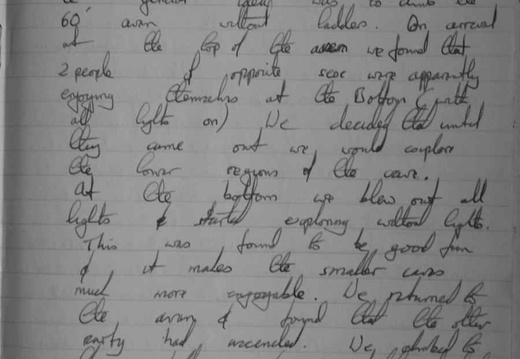 general idea was to climb the
60' aven without ladders. On arrival
at the top of the aven we found that
2 people of opposite sex were apparently
enjoying themselves at the Bottom (with
all lights on) We decided that until
they came out we would explore
the lower regions of the cave.
At the bottom we blew out all
lights & started exploring without lights.
This was found to be good fun
& it makes the smaller caves
much more enjoyable. We returned to
the aven & found that the other
party had ascended. We climbed to